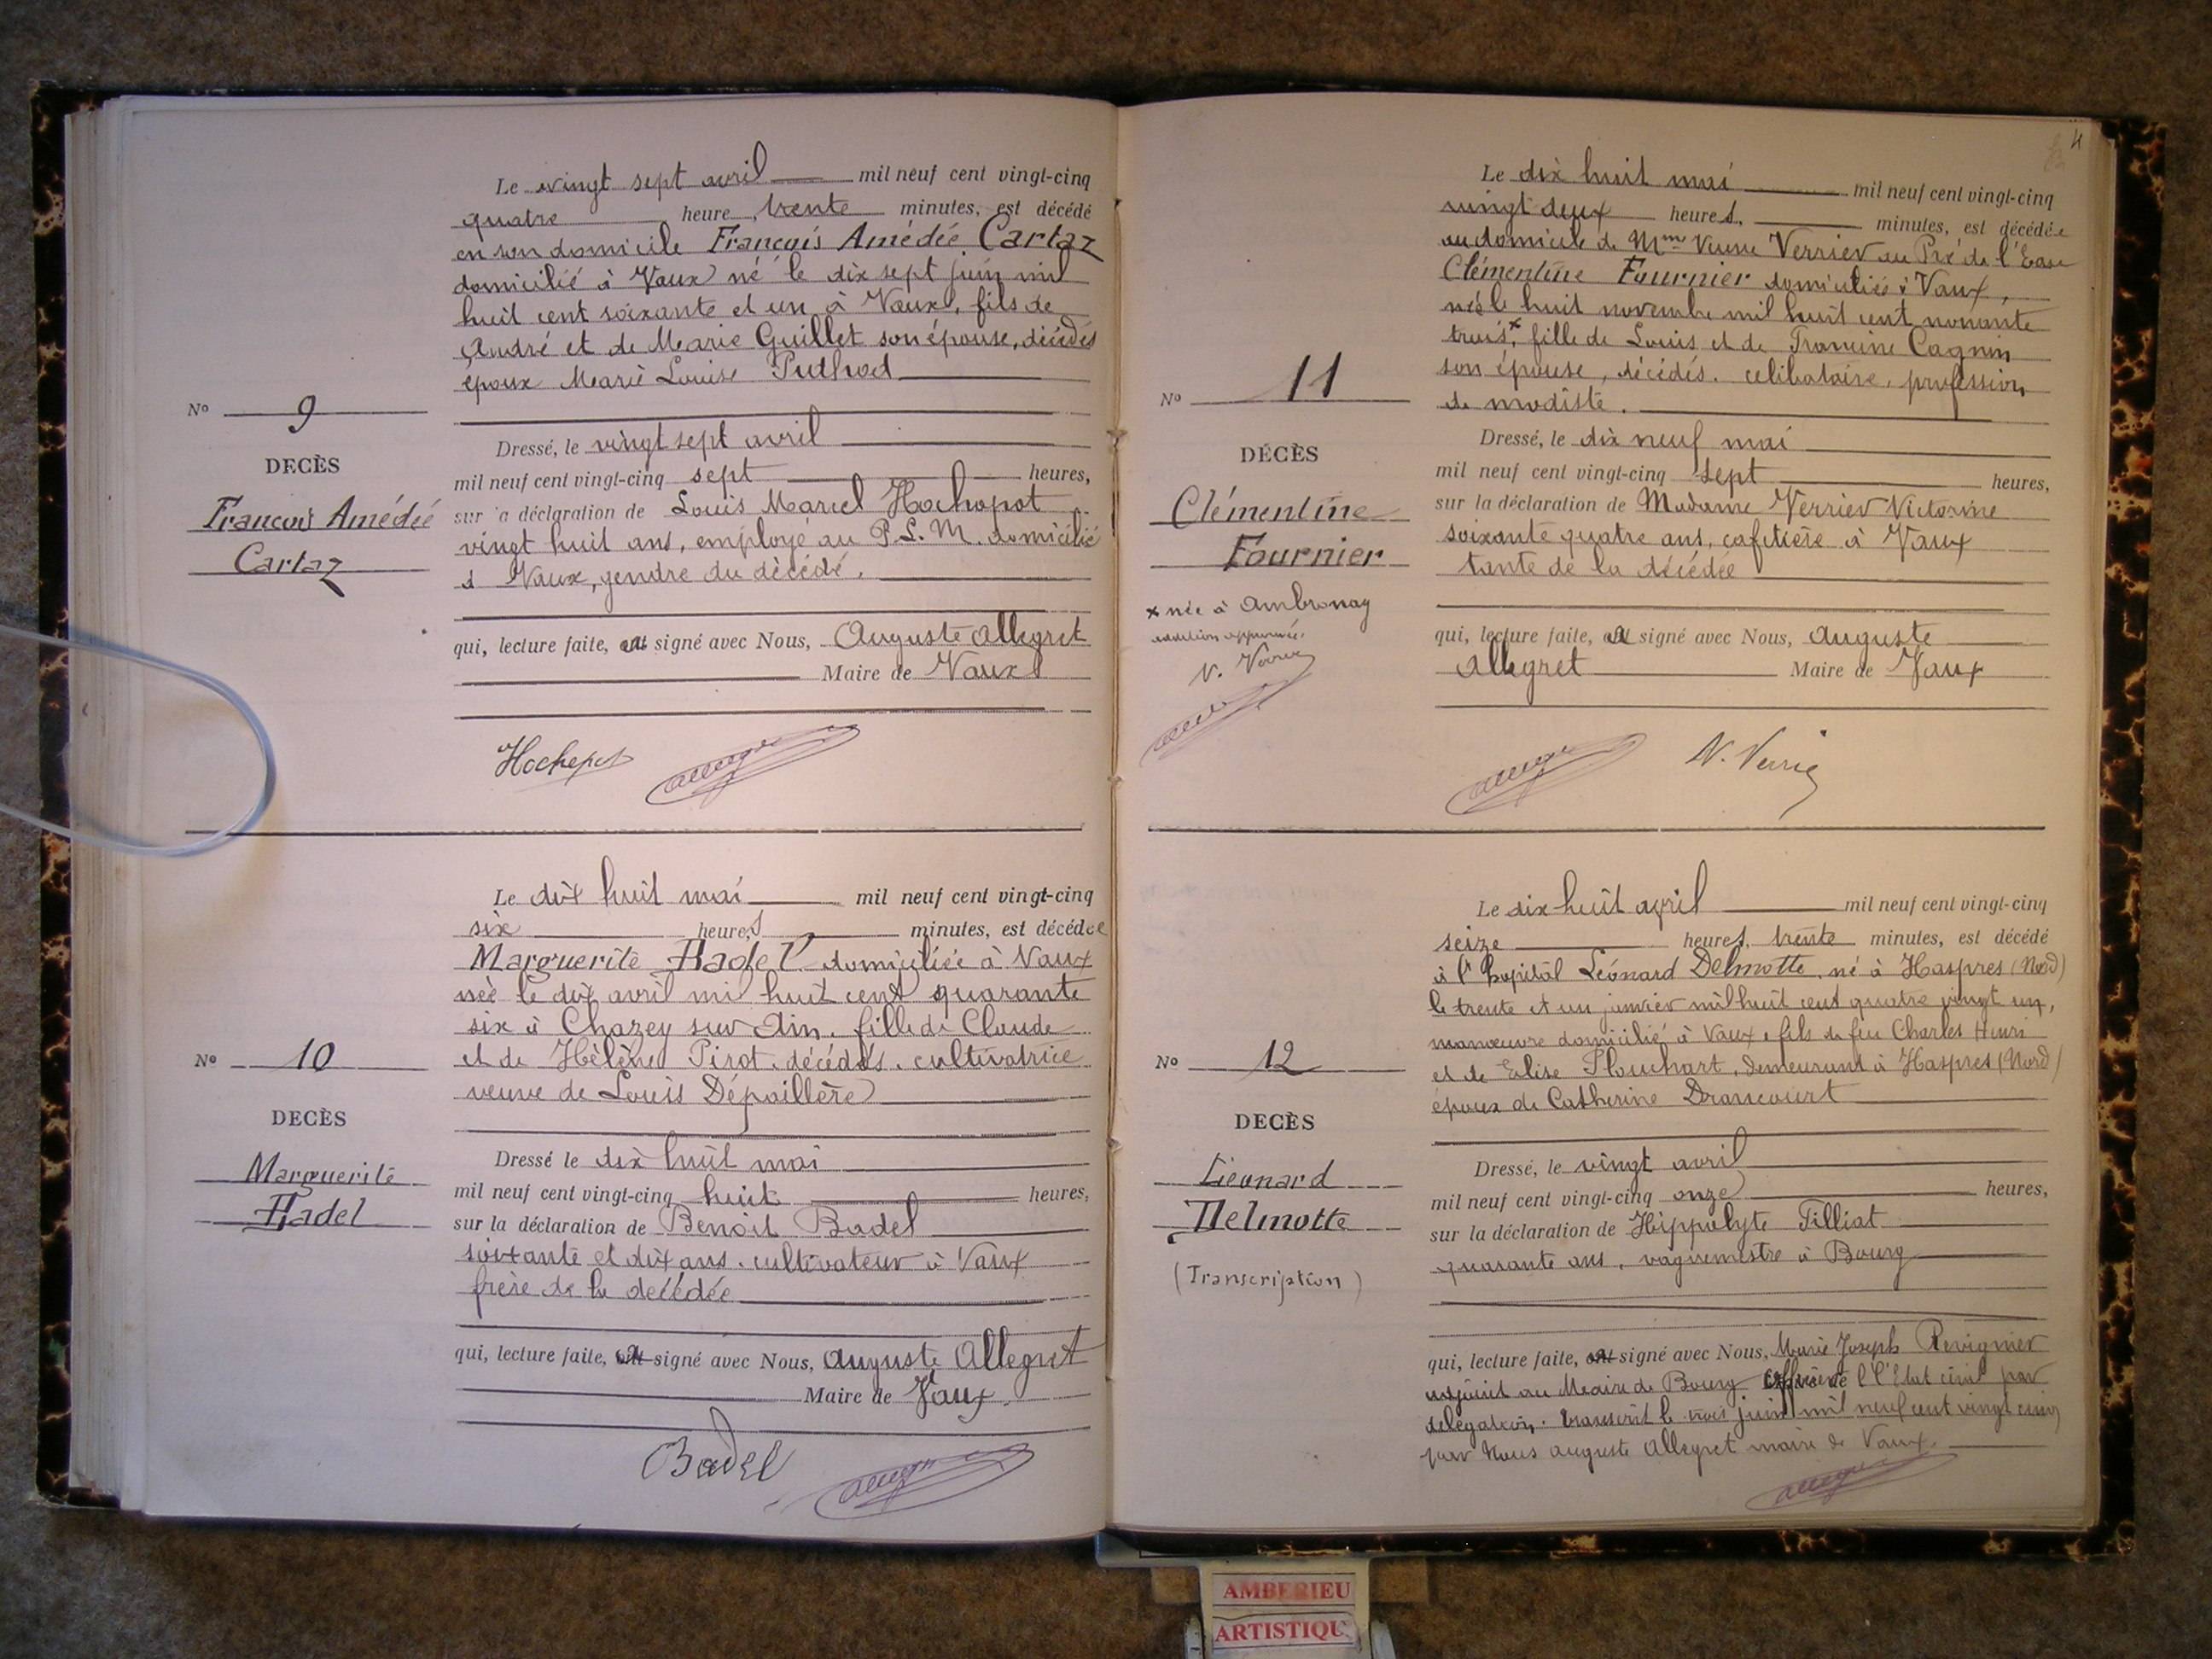 Le vingt sept avril mil neuf cent vingt-cinq
quatre heure, trente minutes, est décédé
en son domicile François Amédée Cartaz
domicilié à Vaux né le dix sept juin mil
huit cent soixante et un à Vaux, fils de
André et de Marie Guillet son épouse, décédés
époux Marie Louise Puthod
No 9
DECÈS
François Amédée
Cartaz
Dressé, le vingt sept avril
mil neuf cent vingt-cinq sept heures,
sur la déclaration de Louis Marcel Hochopot
vingt huit ans, employé au P.L.M. domicilié
à Vaux, gendre du décédé.
qui, lecture faite, a signé avec Nous, Auguste Allegret
Maire de Vaux
Hochepot
Le dix huit mai mil neuf cent vingt-cinq
six heures, minutes, est décédée
Marguerite Badel domiciliée à Vaux
née le dix avril mil huit cent quarante
six à Chazey sur Ain, fille de Claude
et de Hélène Pirot, décédés, cultivatrice
veuve de Louis Dépaillère
No 10
DECÈS
Marguerite
Badel
Dressé le dix huit mai
mil neuf cent vingt-cinq huit heures,
sur la déclaration de Benoit Badel
soixante et dix ans, cultivateur à Vaux
frère de la décédée
qui, lecture faite, a signé avec Nous, Auguste Allegret
Maire de Vaux.
Badel
4
Le dix huit mai mil neuf cent vingt-cinq
vingt deux heures, minutes, est décédée
au domicile de Mme Veuve Verrier au Pré de l'Eau
Clémentine Fournier domiciliée à Vaux,
née le huit novembre mil huit cent nonante
trois x, fille de Louis et de Francine Cagnin
son épouse, décédés. celibataire, profession
de modiste.
No 11
DÉCÈS
Clémentine
Fournier
x née à Ambronay
addition approuvée.
Dressé, le dix neuf mai
mil neuf cent vingt-cinq sept heures,
sur la déclaration de Madame Verrier Victorine
soixante quatre ans, cafetière à Vaux
tante de la décédée
qui, lecture faite, a signé avec Nous, Auguste
Allegret Maire de Vaux
Le dix huit avril mil neuf cent vingt-cinq
seize heures, trente minutes, est décédé
à l'hopital Léonard Delmotte, né à Haspres (Nord)
le trente et un janvier mil huit cent quatre vingt un,
manœuvre domicilié à Vaux, fils de feu Charles Henri
et de Elise Plouchart, demeurant à Haspres (Nord)
époux de Catherine Drancourt
No 12
DECÈS
Léonard
Delmotte
(Transcription)
Dressé, le vingt avril
mil neuf cent vingt-cinq onze heures,
sur la déclaration de Hippolyte Tilliat
quarante ans, vaguemestre à Bourg
qui, lecture faite, a signé avec Nous, Marie Joseph Revignier
adjoint au Maire de Bourg Officier de l'Etat civil par
délégation. transcrit le trois juin mil neuf cent vingt cinq
par Nous Auguste Allegret maire de Vaux.
AMBERIEU
ARTISTIQU